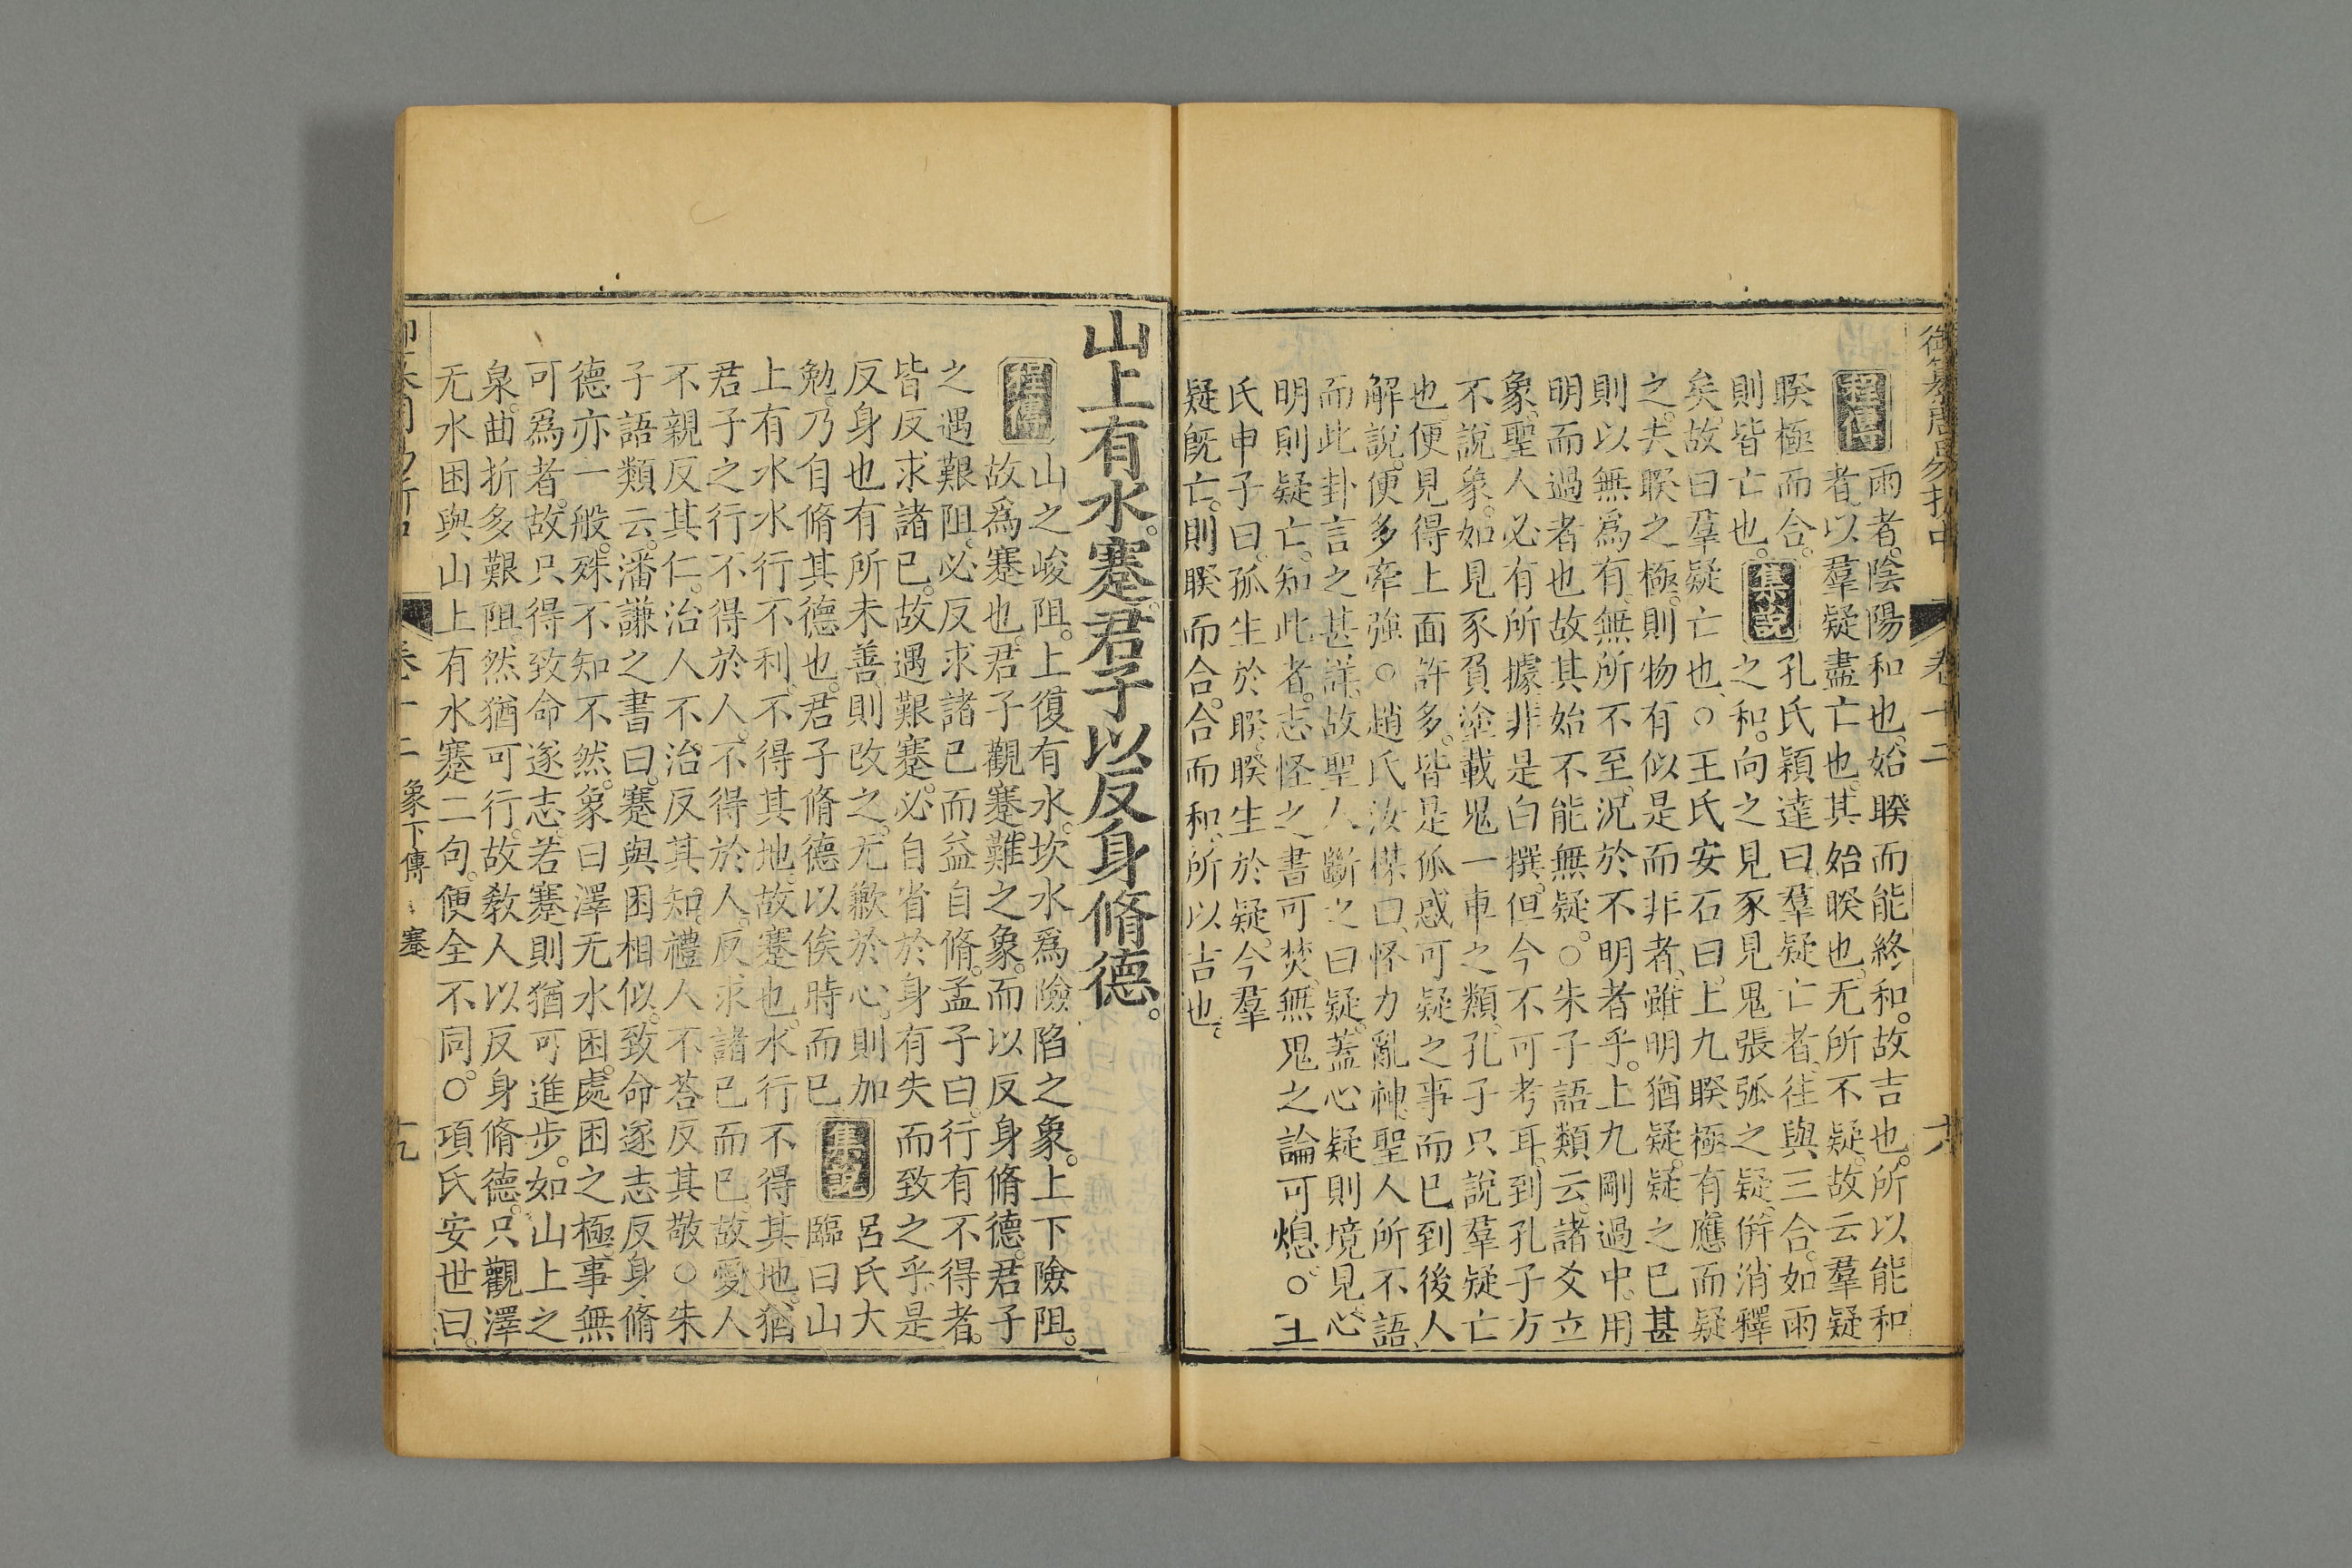 御纂周易折中 卷十二 六
程傳
雨者。陰陽和也。始睽而能終和。故吉也。所以能和
者。以羣疑盡亡也。其始睽也。无所不疑。故云羣疑
睽極而合。
集說
孔氏穎達曰。羣疑亡者。往與三合。如雨
則皆亡也。
之和。向之見豕見鬼張弧之疑。倂消釋
矣。故曰羣疑亡也。○王氏安石曰。上九睽極有應而疑
之。夫睽之極。則物有似是而非者。雖明猶疑。疑之已甚
則以無爲有。無所不至。況於不明者乎。上九剛過中。用
明而過者也。故其始不能無疑。○朱子語類云。諸爻立
象。聖人必有所據。非是白撰。但今不可考耳。到孔子方
不說象。如見豕負塗載鬼一車之類。孔子只說羣疑亡
也。便見得上面許多。皆是狐惑可疑之事而已。到後人
解說。便多牽強。○趙氏汝楳曰。怪力亂神。聖人所不語。
而此卦言之甚詳。故聖人斷之曰疑。蓋心疑則境見。心
明則疑亡。知此者。志怪之書可焚。無鬼之論可熄。○王
氏申子曰。孤生於睽。睽生於疑。今羣
疑旣亡。則睽而合。合而和。所以吉也。
山上有水。蹇。君子以反身脩德。
程傳
山之峻阻。上復有水。坎水爲險陷之象。上下險阻。
故爲蹇也。君子觀蹇難之象。而以反身脩德。君子
之遇艱阻。必反求諸已而益自脩。孟子曰。行有不得者。
皆反求諸已。故遇艱蹇。必自省於身有失而致之乎。是
反身也。有所未善則改之。无歉於心。則加
勉。乃自脩其德也。君子脩德以俟時而已
集說
呂氏大
臨曰山
上有水。水行不利。不得其地。故蹇也。水行不得其地。猶
君子之行不得於人。不得於人。反求諸已而已。故愛人
不親反其仁。治人不治反其知。禮人不荅反其敬。○朱
子語類云。潘謙之書曰。蹇與困相似。致命遂志反身脩
德。亦一般。殊不知不然。象曰澤无水困。處困之極。事無
可爲者。故只得致命遂志。若蹇則猶可進步。如山上之
泉。曲折多艱阻。然猶可行。故敎人以反身脩德。只觀澤
无水困。與山上有水蹇二句。便全不同。○項氏安世曰。
卷十二 象下傳 蹇 十九